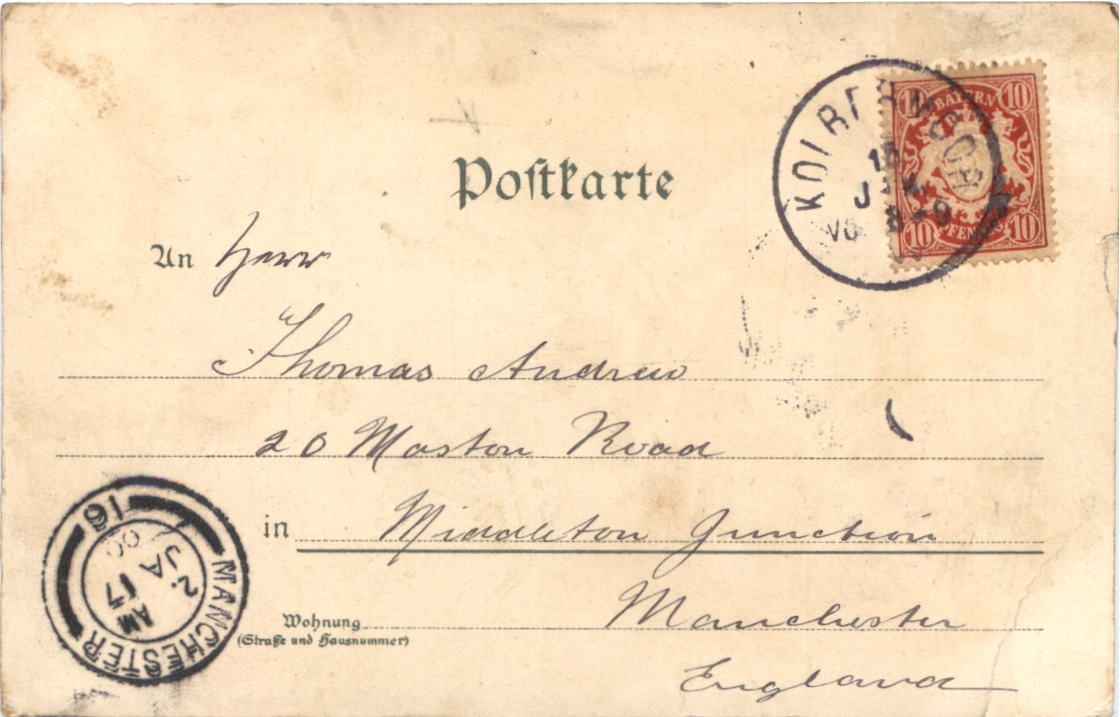 Postkarte
10 BAYERN 10
10 PFENNIG 10
KOLBERMOOR
15
JAN
VO 8-9
An Herr
Thomas Andrew
20 Maston Road
in Middleton Junction
Manchester
Wohnung
(Straße und Hausnummer)
England
MANCHESTER
16
2. AM
JA 17
00